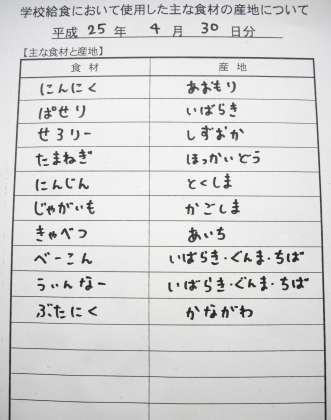 学校給食において使用した主な食材の産地について
平成 25 年 4 月 30 日分
【主な食材と産地】
食材 産地
にんにく あおもり
ぱせり いばらき
せろりー しずおか
たまねぎ ほっかいどう
にんじん とくしま
じゃがいも かごしま
きゃべつ あいち
べーこん いばらき・ぐんま・ちば
うぃんなー いばらき・ぐんま・ちば
ぶたにく かながわ